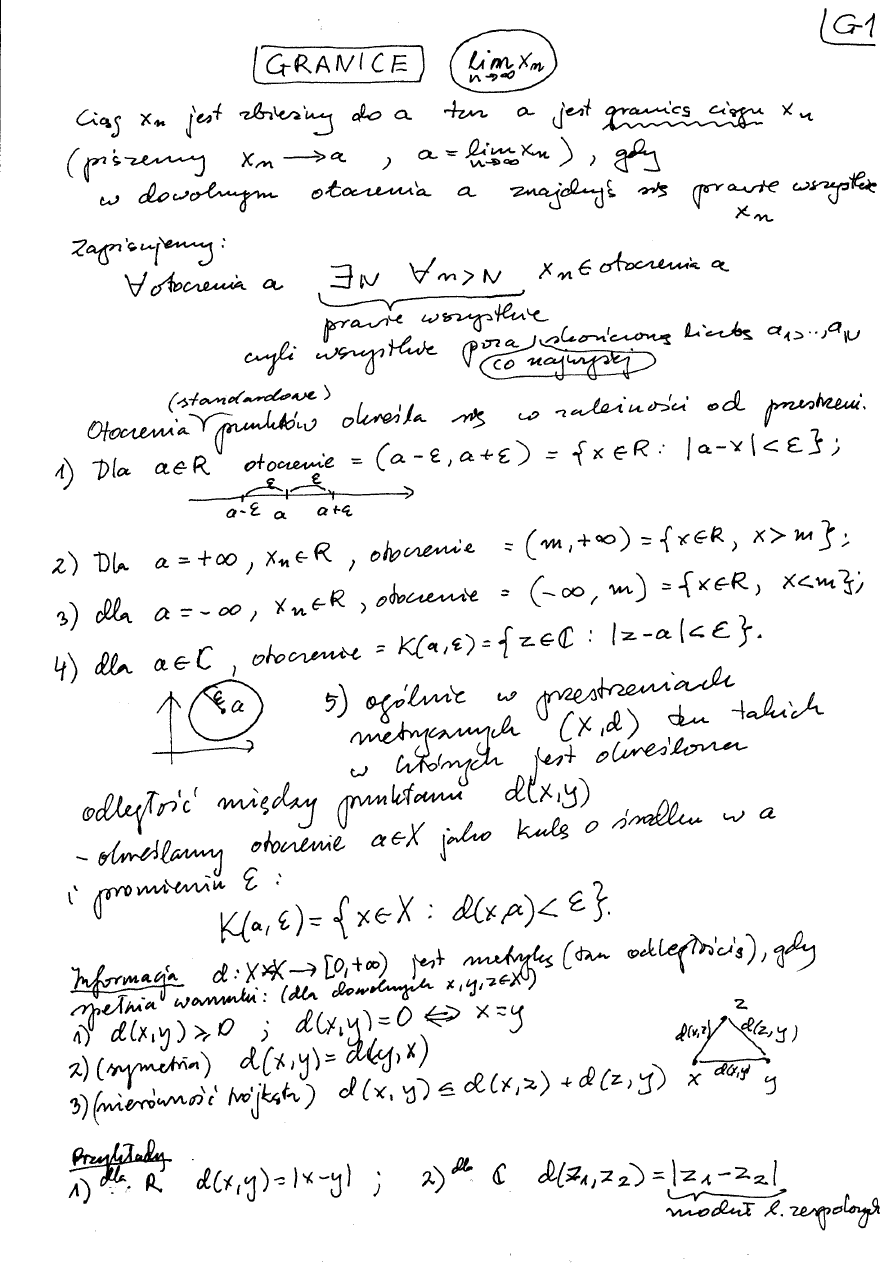 G1
GRANICE lim xₙ n→∞
Ciąg xₙ jest zbieżny do a tzn a jest granicą ciągu xₙ
(piszemy xₙ → a , a = lim xₙ n→∞ ) , gdy
w dowolnym otoczeniu a znajdują się prawie wszystkie
xₙ
Zapisujemy:
∀ otoczenia a ∃N ∀n>N xₙ ∈ otoczenia a
prawie wszystkie
czyli wszystkie poza skończoną liczbą a₁,..,a_N
co najwyżej
(standardowe)
Otoczenia punktów określa się w zależności od przestrzeni.
1) Dla a∈R otoczenie = (a-ε, a+ε) = {x∈R : |a-x|<ε};
ε ε
a-ε a a+ε
2) Dla a = +∞, xₙ∈R, otoczenie = (m, +∞) = {x∈R, x>m};
3) dla a = -∞, xₙ∈R, otoczenie = (-∞, m) = {x∈R, x<m};
4) dla a∈ℂ, otoczenie = K(a,ε) = {z∈ℂ : |z-a|<ε}.
ε a
5) ogólnie w przestrzeniach
metrycznych (X,d) tzn takich
w których jest określona
odległość między punktami d(x,y)
- określamy otoczenie a∈X jako kulę o środku w a
i promieniu ε :
K(a,ε) = {x∈X : d(x,a)<ε}.
Informacja d: X×X→[0,+∞) jest metryką (tzn odległością), gdy
spełnia warunki: (dla dowolnych x,y,z∈X)
1) d(x,y) ≥ 0 ; d(x,y) = 0 ⇔ x=y
2) (symetria) d(x,y) = d(y,x)
3) (nierówność trójkąta) d(x,y) ≤ d(x,z) + d(z,y)
z
d(x,z) d(z,y)
x d(x,y) y
Przykłady
1) dla R d(x,y) = |x-y| ; 2) dla ℂ d(z₁,z₂) = |z₁-z₂|
moduł l. zespolonych